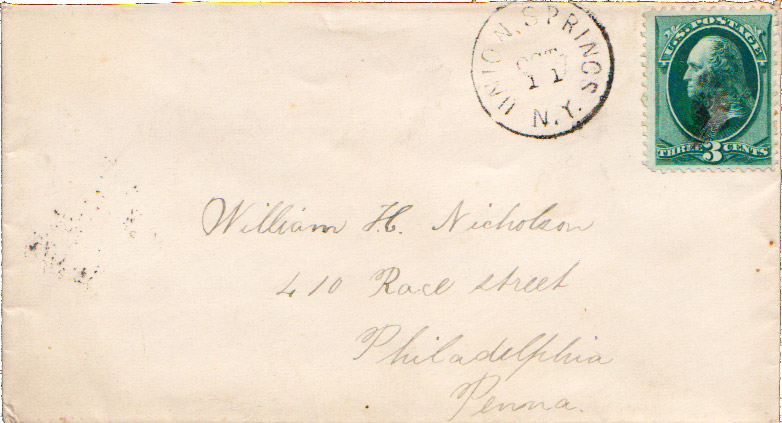 UNION SPRINGS
OCT
11
N.Y.
U.S. POSTAGE
THREE 3 CENTS
William H. Nicholson
410 Race street
Philadelphia
Penna.